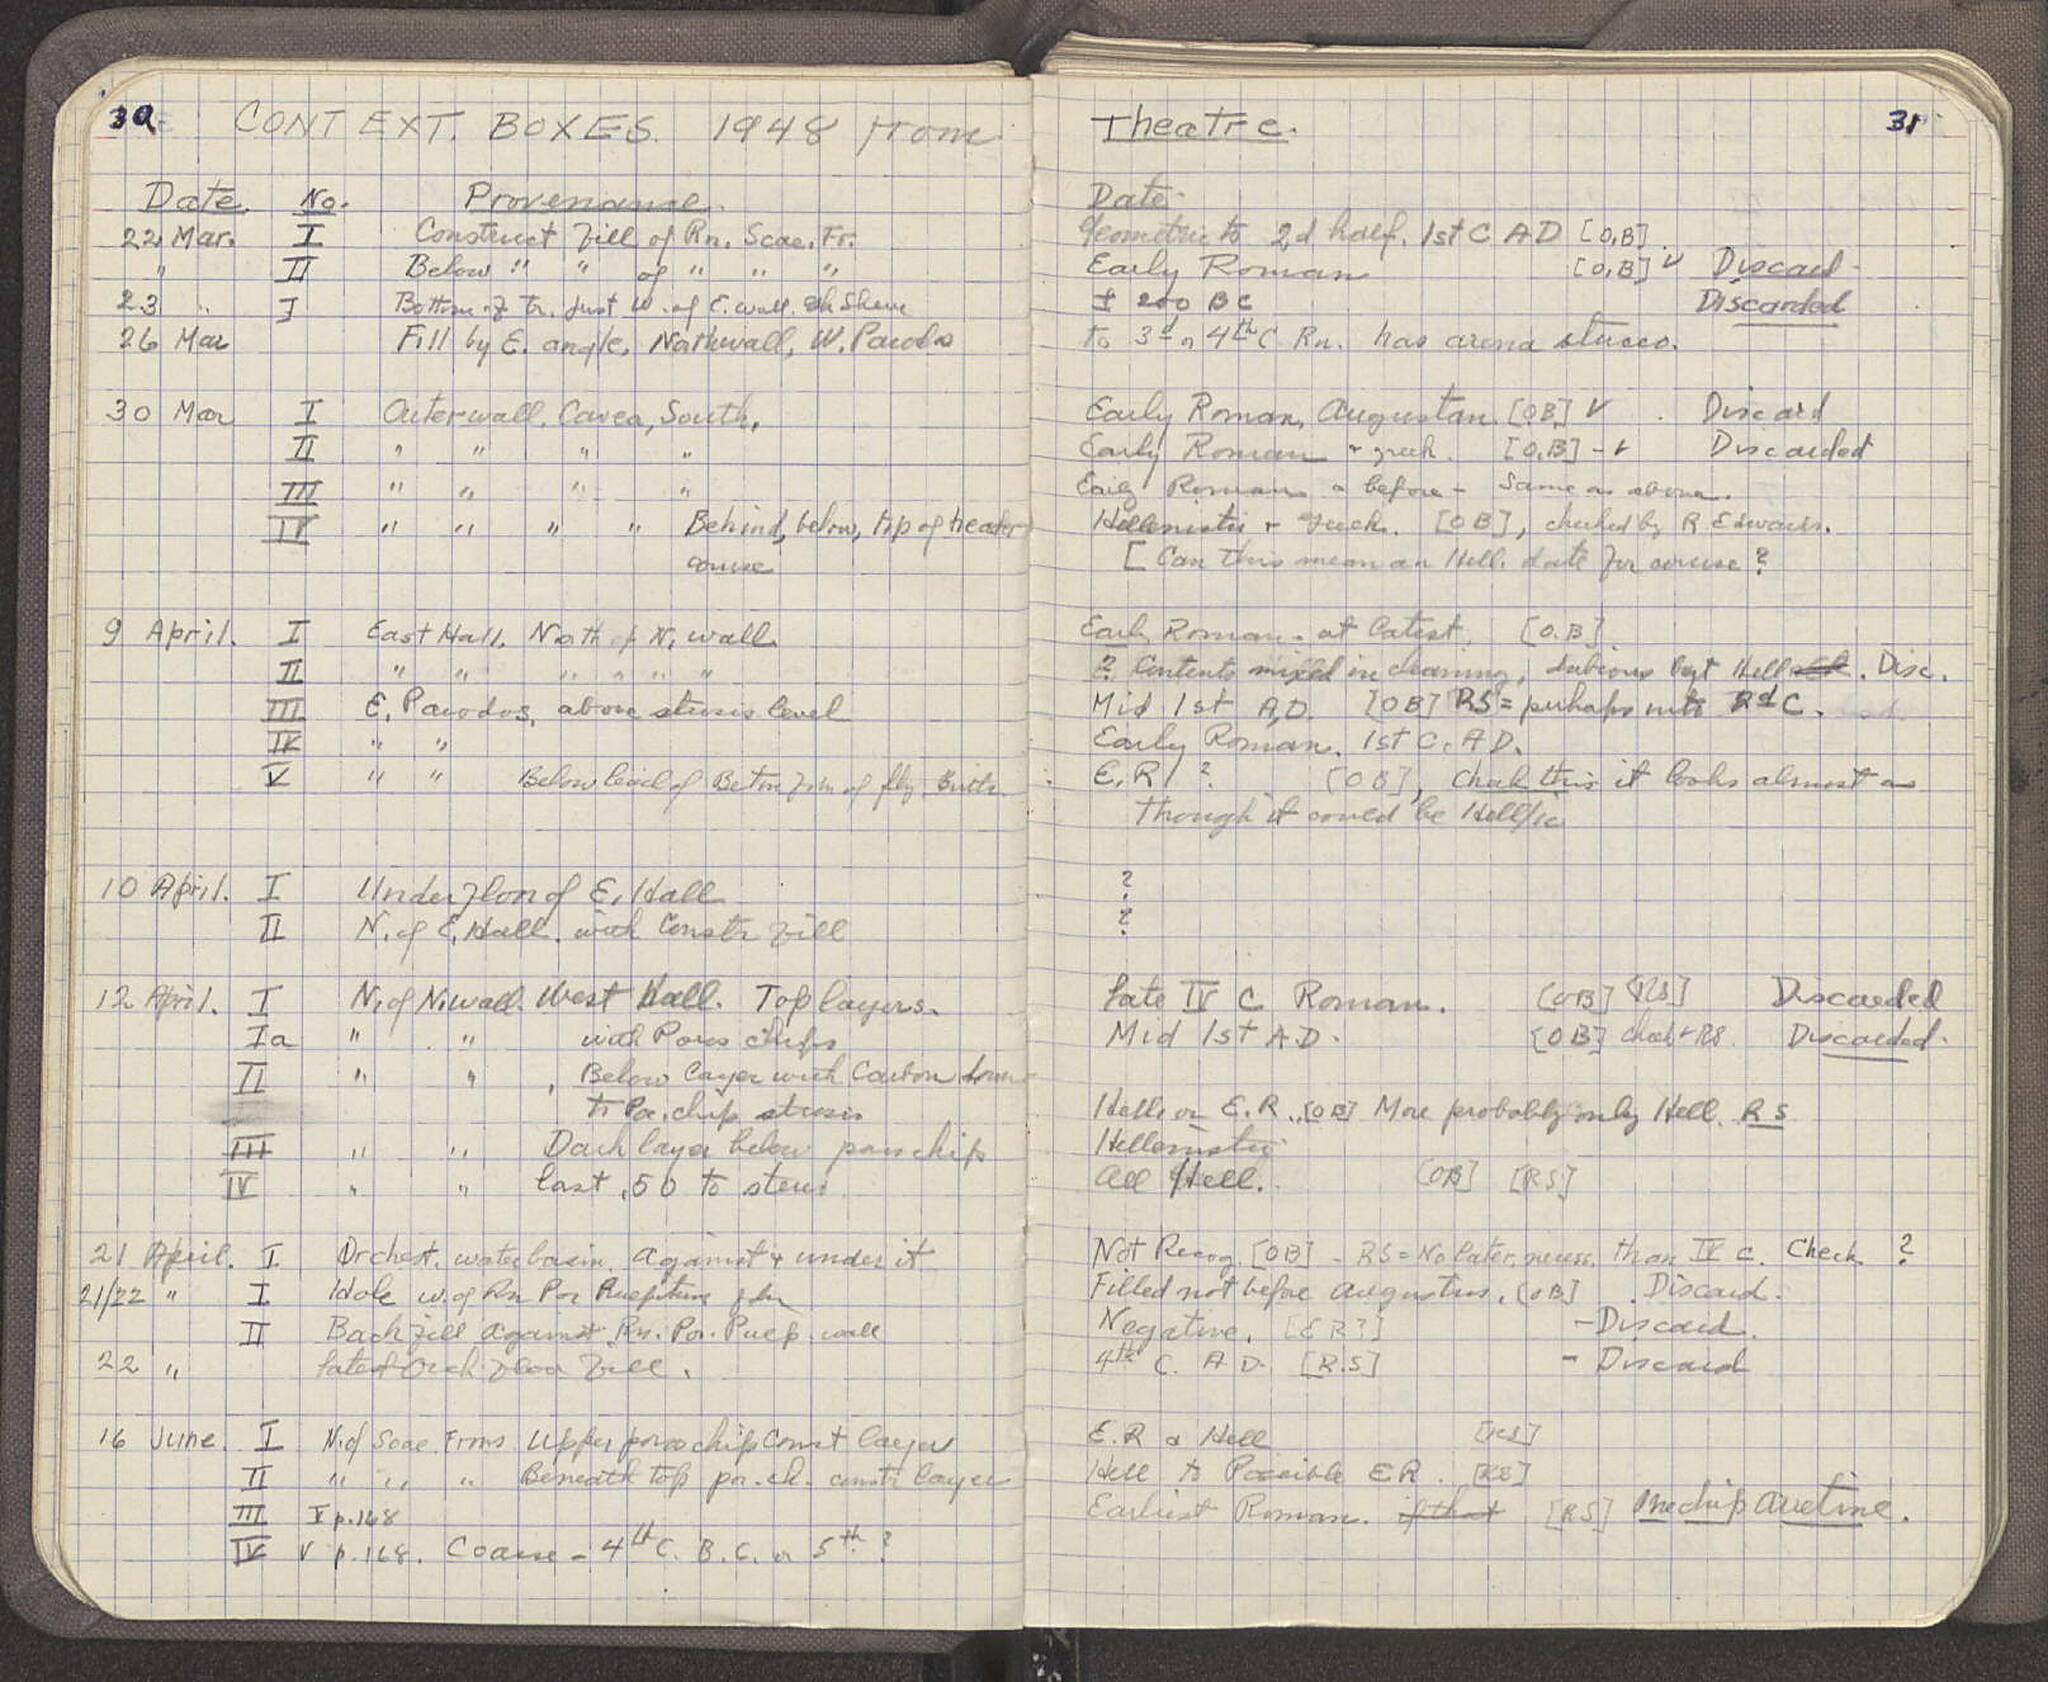 30
CONTEXT. BOXES. 1948 from
Date. No. Provenance.
22 Mar. I Construct fill of Rn. Scae. Fr.
" II Below " " of " " "
23 " I Bottom of tr. just W. of E. wall.
26 Mar Fill by E. angle, North wall, W. Parodos
30 Mar I Outer wall. Cavea, South,
II " " " "
III " " " "
IV " " " " Behind, below, top of header
course
9 April. I East Hall. North of N. wall
II " " " " " "
III E. Parodos, above stereo level
IV " "
V " " Below level of
10 April. I Under floor of E. Hall
II N. of E. Hall. with Constr fill
12 April. I N. of N. wall. West Hall. Top layers.
Ia " " with Poros chips
II " " , Below layer with Carbon down
to Po. chip
III " " Dark layer below poros chip
IV " " last .50 to
21 April. I Orchest. water basin. Against + under it
21/22 " I Hole w. of Rn Por
II Backfill against Rn. Por. wall
22 " Latest Orch floor fill.
16 June. I N. of Scae. Frons Upper poros chip Const layer
II " " " Beneath top por. ch. constr layer
III V p. 168
IV V p. 168. Coarse - 4th C. B.C. or 5th ?
Theatre. 31
Date
Geometric to 2d half. 1st C AD [O,B]
Early Roman [O,B] V Discard
± 200 BC Discarded
to 3d or 4th C Rn. has arena stucco.
Early Roman, Augustan [OB] V . Discard
Early Roman + greek. [O,B] - V Discarded
Early Roman & before - Same as above.
Hellenistic + Greek. [OB], checked by R Edwards.
[Can this mean an Hell. date for course?
Early Roman - at latest. [O.B]
? Contents mixed in cleaning, dubious but Hell . Disc.
Mid 1st A.D. [OB] RS = perhaps into 2d C.
Early Roman. 1st C. AD.
E.R ? [OB], check this it looks almost as
though it could be Hell/ic
?
?
Late IV C Roman. [OB] [RS] Discarded
Mid 1st A.D. [OB] check + RS. Discarded.
Hell. or E.R. [OB] More probably only Hell. RS
Hellenistic
All Hell. [OB] [RS]
Not Recog. [OB] - RS = No later, necess. than IV C. Check ?
Filled not before Augustus. [OB] . Discard.
Negative. [ER?] - Discard.
4th C. A D. [R.S] - Discard
E.R & Hell [RS]
Hell to Possible ER. [RS]
Earliest Roman. if that [RS] One chip Aretine.